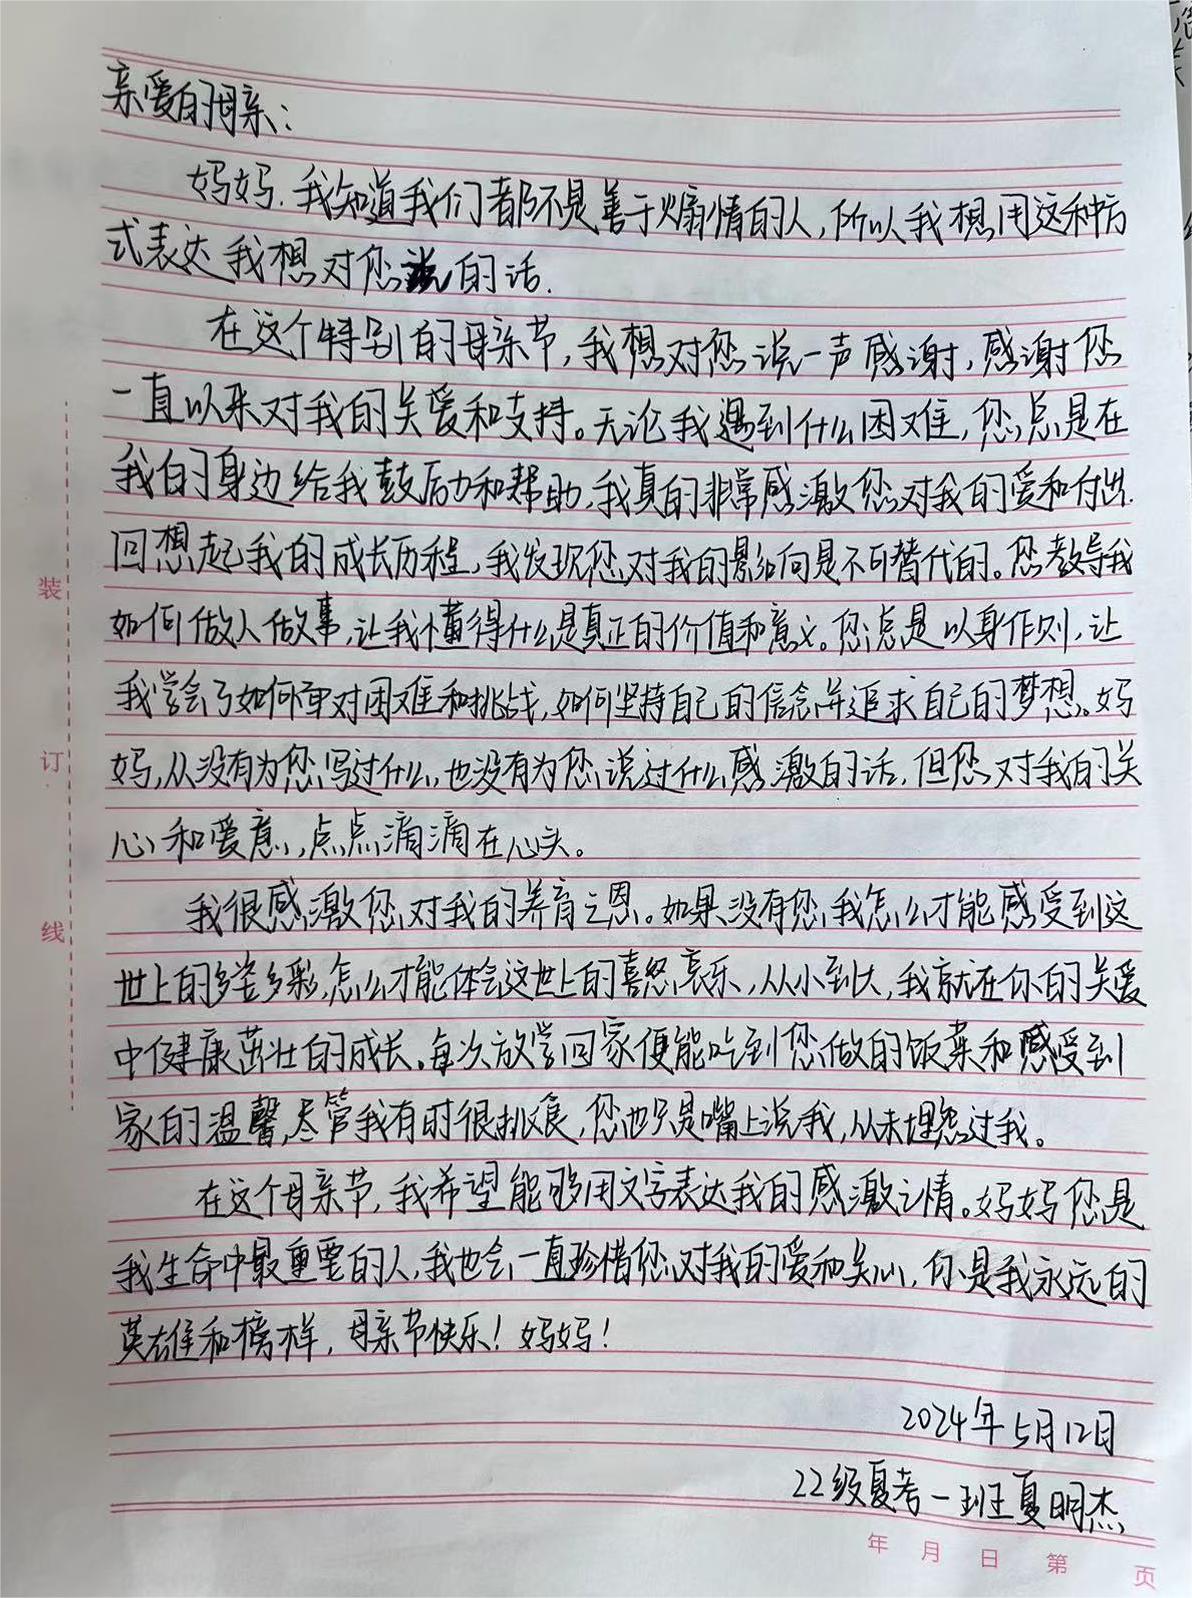 亲爱的母亲：
妈妈.我知道我们都不是善于煽情的人,所以我想用这种方
式表达我想对您说的话.
在这个特别的母亲节,我想对您说一声感谢,感谢您
一直以来对我的关爱和支持。无论我遇到什么困难,您总是在
我的身边给我鼓励和帮助,我真的非常感激您对我的爱和付出.
回想起我的成长历程,我发现您对我的影响是不可替代的。您教导我
如何做人做事,让我懂得什么是真正的价值和意义。您总是以身作则,让
我学会了如何面对困难和挑战,如何坚持自己的信念并追求自己的梦想。妈
妈,从没有为您写过什么,也没有为您说过什么感激的话.但您对我的关
心和爱意,点点滴滴在心头。
我很感激您对我的养育之恩。如果没有您,我怎么才能感受到这
世上的多姿多彩,怎么才能体会这世上的喜怒哀乐,从小到大,我就在你的关爱
中健康茁壮的成长.每次放学回家便能吃到您做的饭菜和感受到
家的温馨,尽管我有时很挑食,您也只是嘴上说我,从未埋怨过我。
在这个母亲节,我希望能够用文字表达我的感激之情。妈妈您是
我生命中最重要的人,我也会一直珍惜您对我的爱和关心,你是我永远的
英雄和榜样,母亲节快乐!妈妈!
2024年5月12日
22级夏考一班夏明杰
装
订
线
年 月 日 第 页